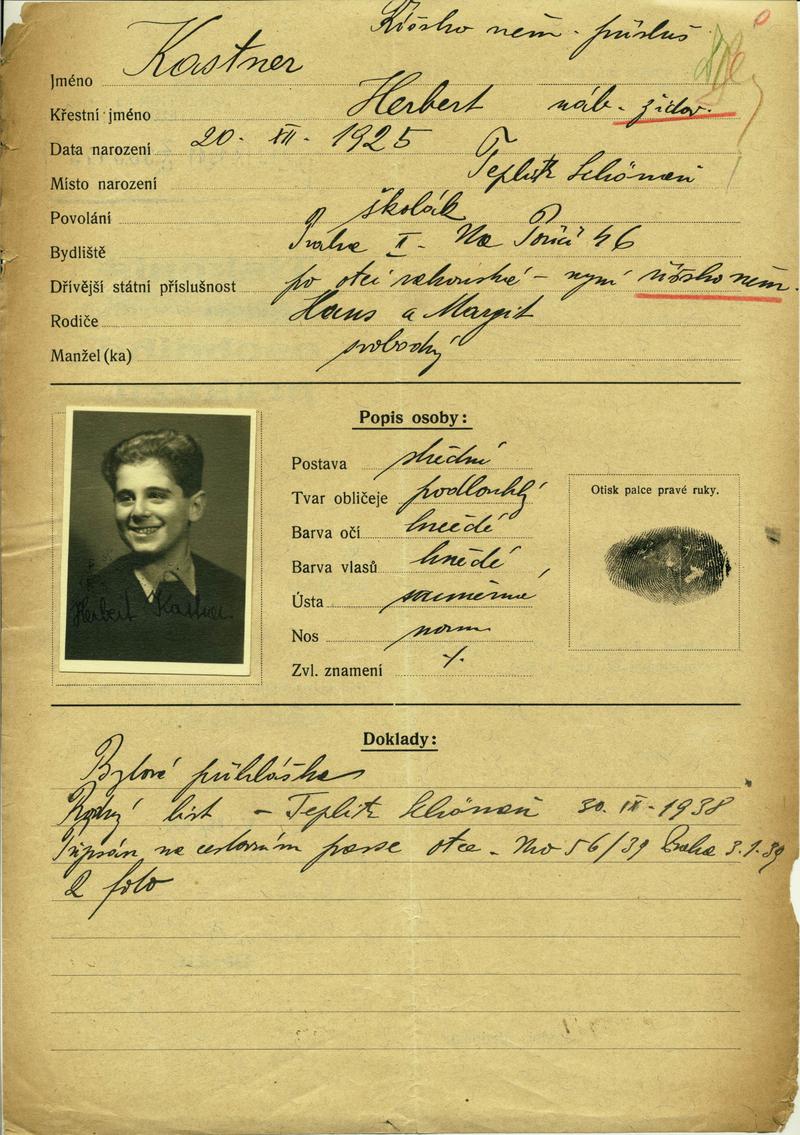 Říšsko něm. přísluš
Jméno Kastner
Křestní jméno Herbert náb. židov.
Data narození 20. XII. 1925
Místo narození Teplitz Schönau
Povolání školák
Bydliště Praha II. Na Poříčí 46
Dřívější státní příslušnost po otci rakouské - nyní říšsko něm.
Rodiče Hans a Margit
Manžel (ka) svobodný
Popis osoby:
Postava střední
Tvar obličeje podlouhlý
Barva očí hnědé
Barva vlasů hnědé
Ústa souměrné
Nos norm
Zvl. znamení ./.
Otisk palce pravé ruky.
Herbert Kastner
Doklady:
Bytová přihláška
Rodný list - Teplitz Schönau 30. IX. 1938
Připsán na cestovním passe otce. No 56/39 Praha 3.1.39
2 foto